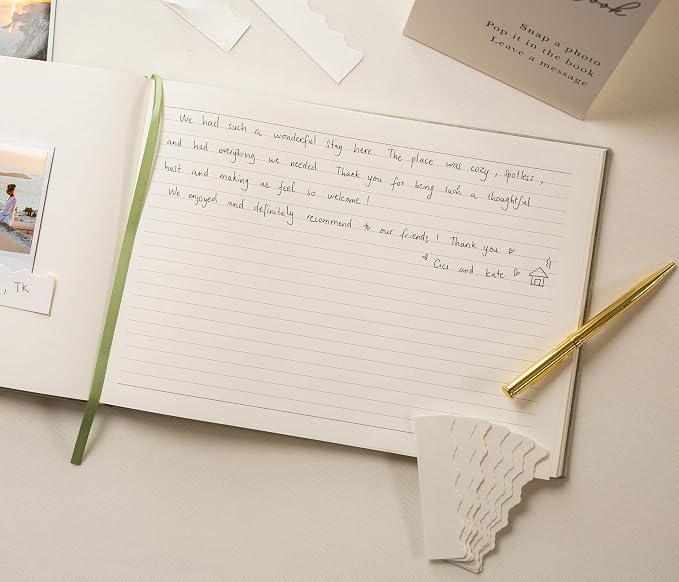 ook
Snap a photo
Pop it in the book
Leave a message
We had such a wonderful stay here. The place was cozy, spotless,
and had everything we needed Thank you for being such a thoughtful
host and making us feel so welcome!
We enjoyed and definitely recommend to our friends! Thank you ♡
Cici and kate ♡
, TK